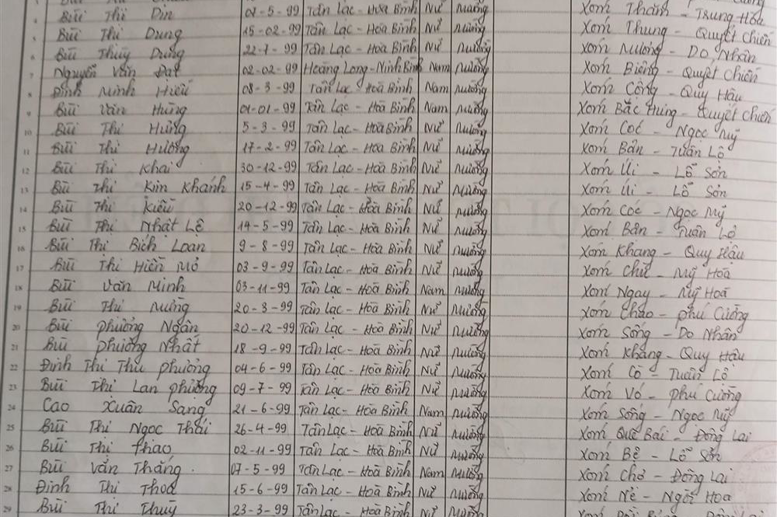 Bùi Thị Din 01-5-99 Tân Lạc - Hòa Bình Nữ Mường Xóm Thăm - Trung Hòa
5 Bùi Thị Dung 15-02-99 Tân Lạc - Hòa Bình Nữ Mường Xóm Thung - Quyết Chiến
6 Bùi Thùy Dung 22-7-99 Tân Lạc - Hòa Bình Nữ Mường Xóm Mương - Do Nhân
7 Nguyễn Văn Đạt 02-02-99 Hoàng Long - Ninh Bình Nam Mường Xóm Biêng - Quyết Chiến
8 Đinh Minh Hiếu 08-3-99 Tân Lạc - Hòa Bình Nam Mường Xóm Cộng - Quy Hậu
9 Bùi Văn Hùng 01-01-99 Tân Lạc - Hòa Bình Nữ Mường Xóm Bắc Hưng - Quyết Chiến
10 Bùi Thị Hưng 5-9-99 Tân Lạc - Hòa Bình Nữ Mường Xóm Cóc - Ngọc Mỹ
11 Bùi Thị Hương 17-2-99 Tân Lạc - Hòa Bình Nữ Mường Xóm Bản - Tuân Lộ
12 Bùi Thị Khai 30-12-99 Tân Lạc - Hòa Bình Nữ Mường Xóm Úi - Lỗ Sơn
13 Bùi Thị Kim Khánh 15-4-99 Tân Lạc - Hòa Bình Nữ Mường Xóm Úi - Lỗ Sơn
14 Bùi Thị Kiều 20-12-99 Tân Lạc - Hòa Bình Nữ Mường Xóm Cóc - Ngọc Mỹ
15 Bùi Thị Nhật Lệ 19-5-99 Tân Lạc - Hòa Bình Nữ Mường Xóm Bản - Tuân Lộ
16 Bùi Thị Bích Loan 9-8-99 Tân Lạc - Hòa Bình Nữ Mường Xóm Khang - Quy Hậu
17 Bùi Thị Hiền Mơ 03-9-99 Tân Lạc - Hòa Bình Nữ Mường Xóm Chù - Mỹ Hoà
18 Bùi Văn Minh 03-11-99 Tân Lạc - Hòa Bình Nam Mường Xóm Ngay - Mỹ Hoà
19 Bùi Thị Mừng 20-3-99 Tân Lạc - Hòa Bình Nữ Mường Xóm Chao - Phú Cường
20 Bùi Phương Ngân 20-12-99 Tân Lạc - Hòa Bình Nữ Mường Xóm Sông - Do Nhân
21 Bùi Phương Nhật 18-9-99 Tân Lạc - Hòa Bình Nữ Mường Xóm Khang - Quy Hậu
22 Đinh Thị Thu Phương 04-6-99 Tân Lạc - Hòa Bình Nữ Mường Xóm Cò - Tuân Lộ
23 Bùi Thị Lan Phương 09-7-99 Tân Lạc - Hòa Bình Nữ Mường Xóm Vó - Phú Cường
24 Cao Xuân Sang 21-6-99 Tân Lạc - Hòa Bình Nam Mường Xóm Sông - Ngọc Mỹ
25 Bùi Thị Ngọc Thái 26-4-99 Tân Lạc - Hòa Bình Nữ Mường Xóm Quê Bái - Đông Lai
26 Bùi Thị Thao 02-11-99 Tân Lạc - Hòa Bình Nữ Mường Xóm Bệ - Lỗ Sơn
27 Bùi Văn Thắng 07-5-99 Tân Lạc - Hòa Bình Nam Mường Xóm Chơ - Đông Lai
28 Đinh Thị Thoa 15-6-99 Tân Lạc - Hòa Bình Nữ Mường Xóm Nẻ - Ngòi Hoa
29 Bùi Thị Thuỷ 23-3-99 Tân Lạc - Hòa Bình Nữ Mường Xóm